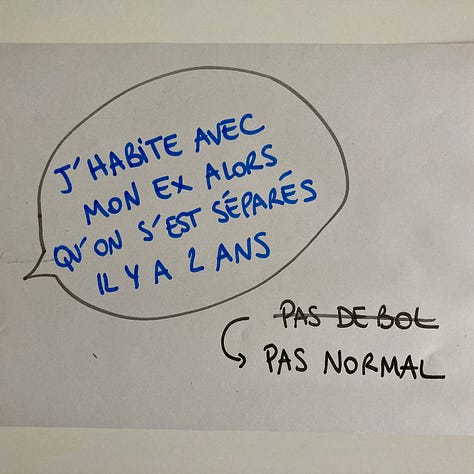 J'HABITE AVEC
MON EX ALORS
QU'ON S'EST SÉPARÉS
IL Y A 2 ANS
PAS DE BOL
PAS NORMAL